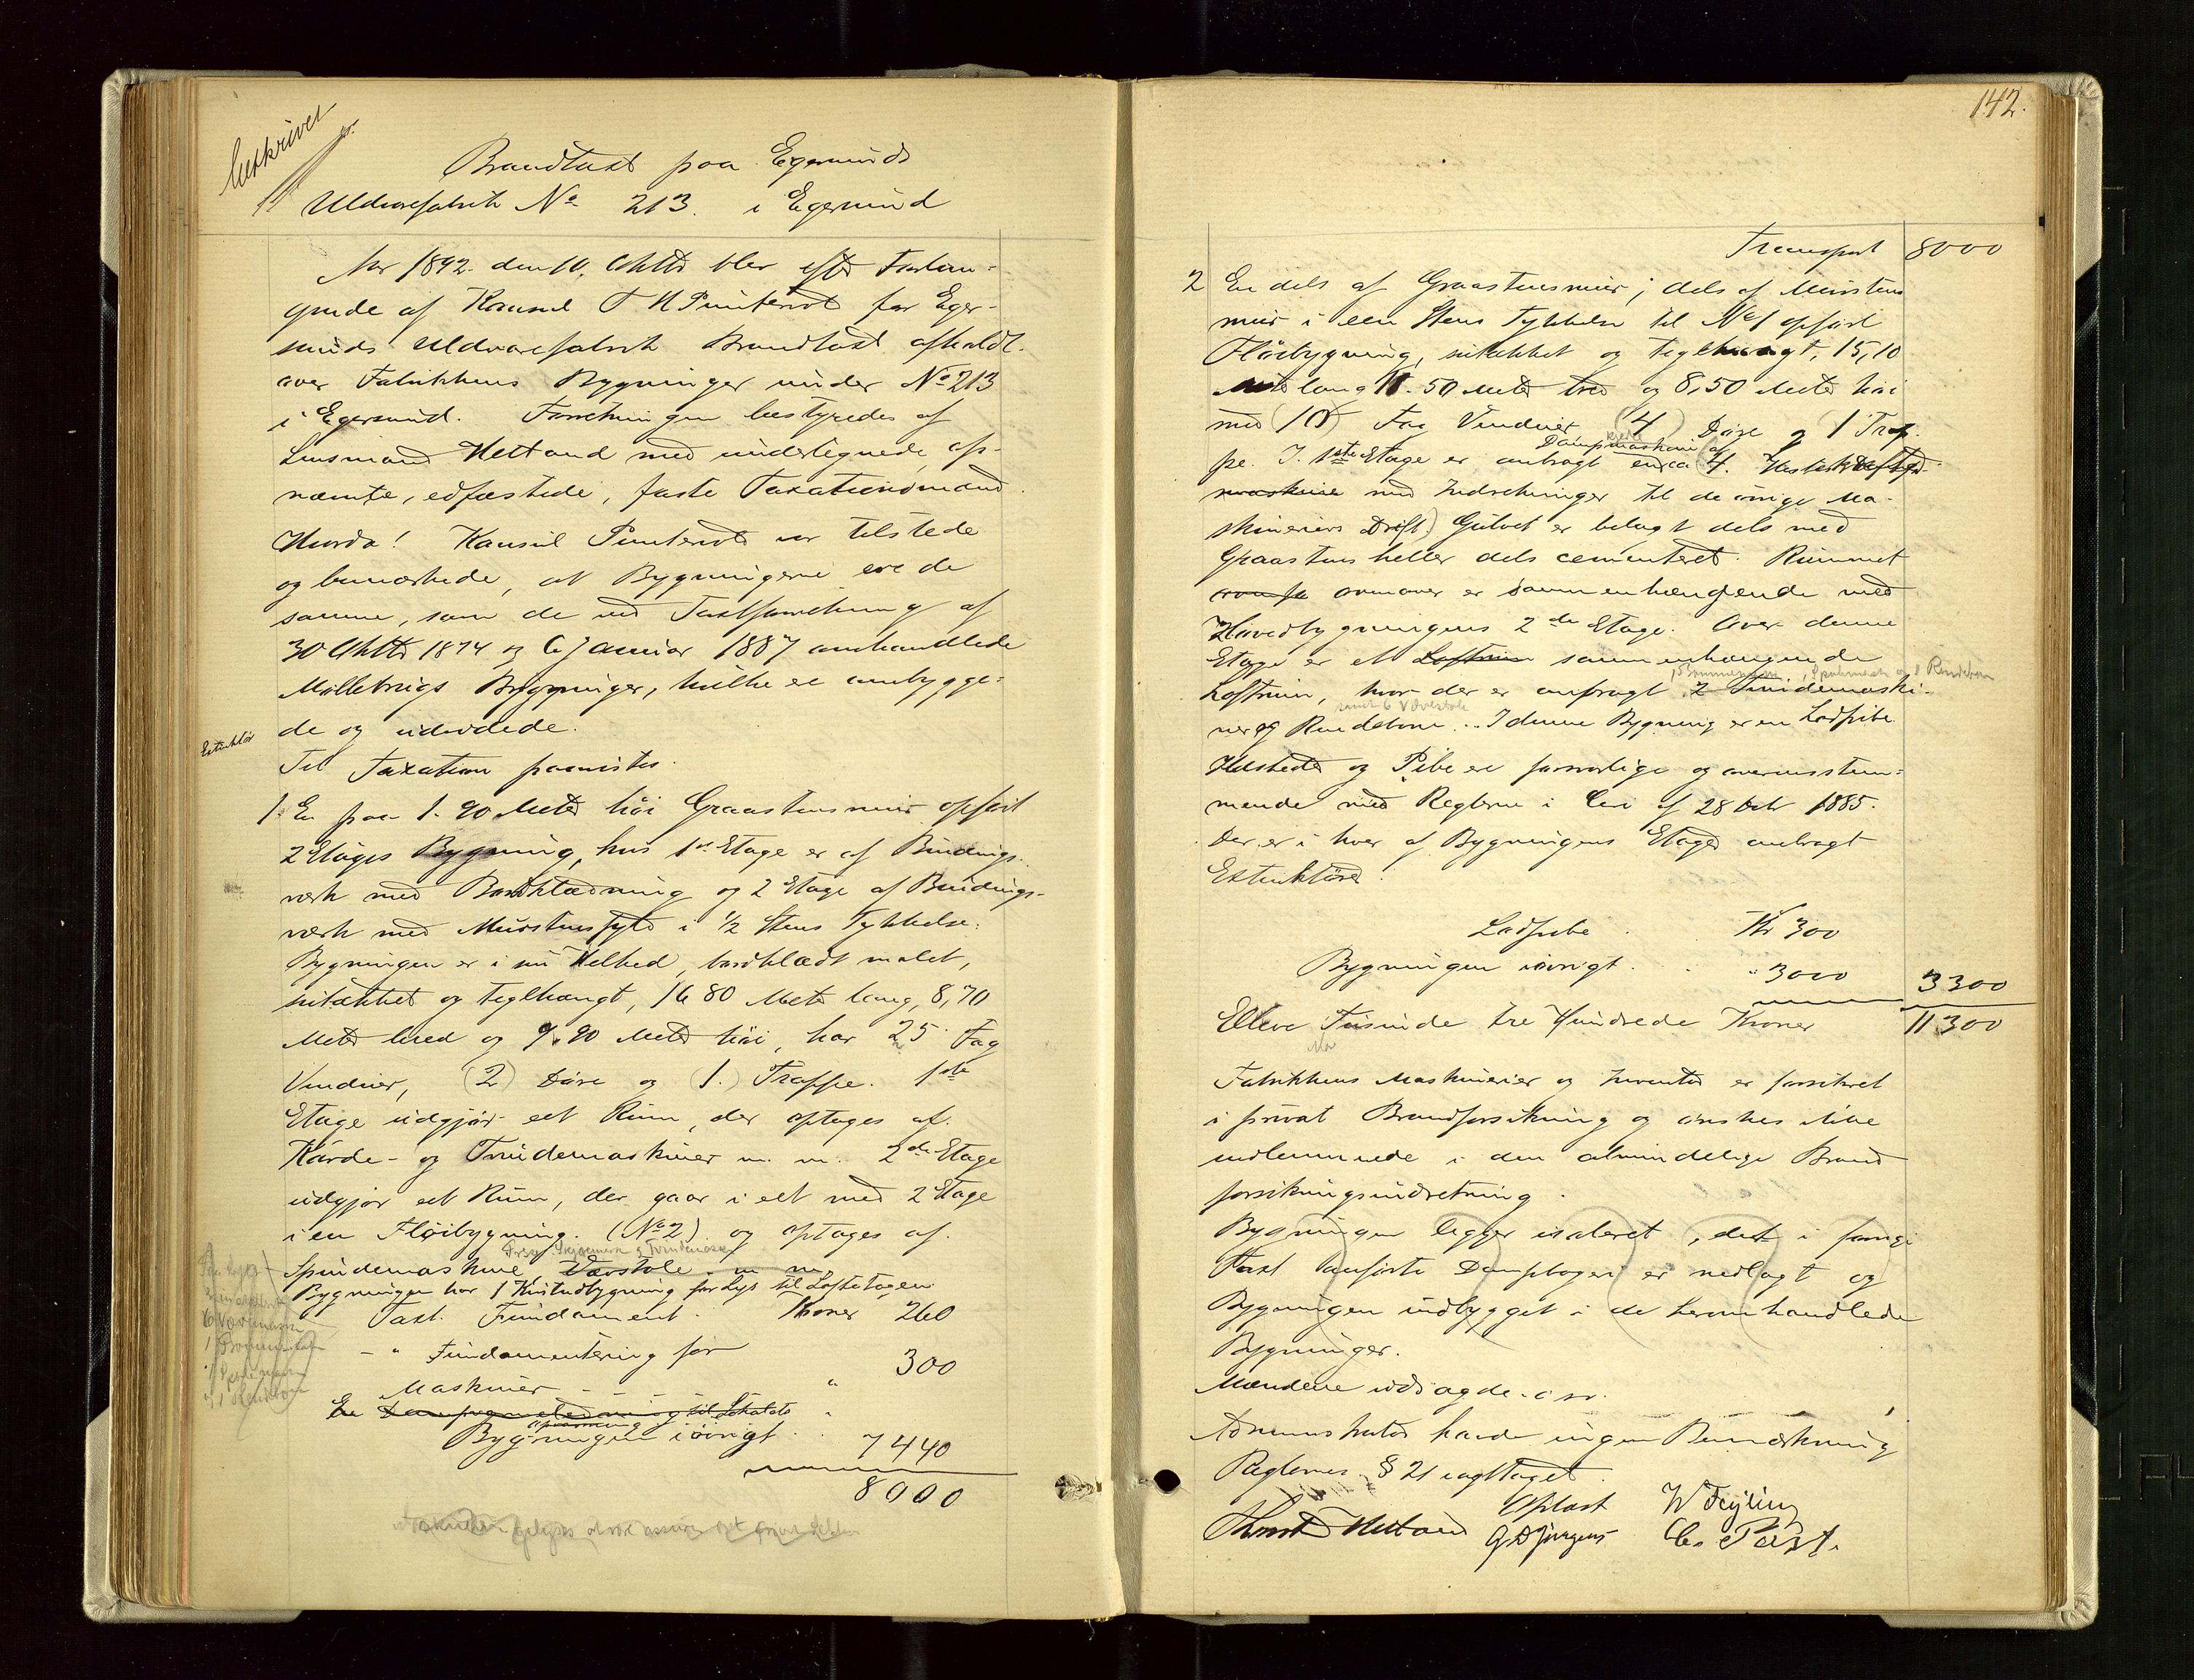 Udskrivet
Brandtaxt paa Egersunds
Uldvarefabrik No 213. i Egersund
Aar 1892. den 10. Oktbr blev efter Forlan-
gende af Konsul for Eger-
sunds Uldvarefabrik Brandtaxt afholdt
over Fabrikkens Bygninger under No 213
i Egersund. Forretningen bestyredes af
Lensmand Hetland med undertegnede, op-
nævnte, edfæstede, faste Taxationsmænd.
Hvorda! Konsul var tilstede
og bemærkede, at Bygningerne ere de
samme, som de ved Taxtforretning af
30 Oktbr 1874 og 6 Januar 1887 omhandlede
Møllebrugs Bygninger, hvilke er ombygge-
de og udvidede.
Extinktør
Til Taxation paavistes.
1. En paa 1.90 Meter høi Graastensmur opført
2 Etages Bygning, hvis 1ste Etage er af Bindings-
værk med Bordklædning og 2 Etage af Bindings-
værk med Murstensfyld i 1/2 Stens Tykkelse.
Bygningen er i sin Helhed, bordklædt malet,
sutækket og teglhængt, 16 80 Meter lang, 8,70
Meter bred og 9.90 Meter høi, har 25 Fag
Vinduer, (2) Døre og (1.) Trappe. 1ste
Etage udgjør et Rum, der optages af
Karde- og Tvindemaskiner m. m. 2den Etage
udgjør et Rum, der gaar i et med 2 Etage
i en Fløibygning. (No 2) og optages af
Spindemaskine Vævstole m m
Bygningen har 1 Kvistudbygning for Lys til Loftetagen
Taxt. Fundament. Kroner 260
-"- Fundamentering for
Maskiner - - - " 300
Opvarming
Bygningen iøvrigt 7440
8000
142.
Transport 8000
2 En dels af Graastensmur, dels af Murstens
mur i een Stens Tykkelse til No 1 opført
Fløibygning, sutækket og teglhængt, 15,10
Meter lang 11.50 Meter bred og 8,50 Meter høi
med (10) Fag Vinduer (4) Døre og 1 Trap-
Dampmaskine af
pe. I 1ste Etage er anbragt en ca 4. Hestekræfters
maskine med Indretninger til de øvrige Ma-
skineriers Drift) Gulvet er belagt dels med
Graastens heller dels cementeret. Rummet
ovenover er sammenhængende med
Hovedbygningens 2den Etage. Over denne
Etage er et Loftrum sammenhængende
Loftrum, hvor der er anbragt 2 Tvindemaski-
samt 6 Vævestole
ner og Rendebom. I denne Bygning er en Lodpibe
Ildsteder og Pibe ere forsvarlige og overensstem-
mende med Reglerne i Lov af 28 Oktr 1885.
Der er i hver af Bygningens Etager anbragt
Extinktører.
Lodpibe . Kr 300
Bygningen iøvrigt . . " 3000 3300
Elleve Tusinde tre Hundrede Kroner 11300
Fabrikkens Maskinerier og Inventar er forsikret
i privat Brandforsikring og ønskes ikke
indlemmede i den almindelige Brand
forsikringsindretning.
Bygningen ligger isoleret, det i forrige
Taxt anførte Dampbageri er nedlagt og
Bygningen indbygget i de heromhandlede
Bygninger.
Mændene udsagde o sv.
Administrator havde ingen Bemærkning
Reglernes § 21 iagttaget.
Hetland
W Feyling